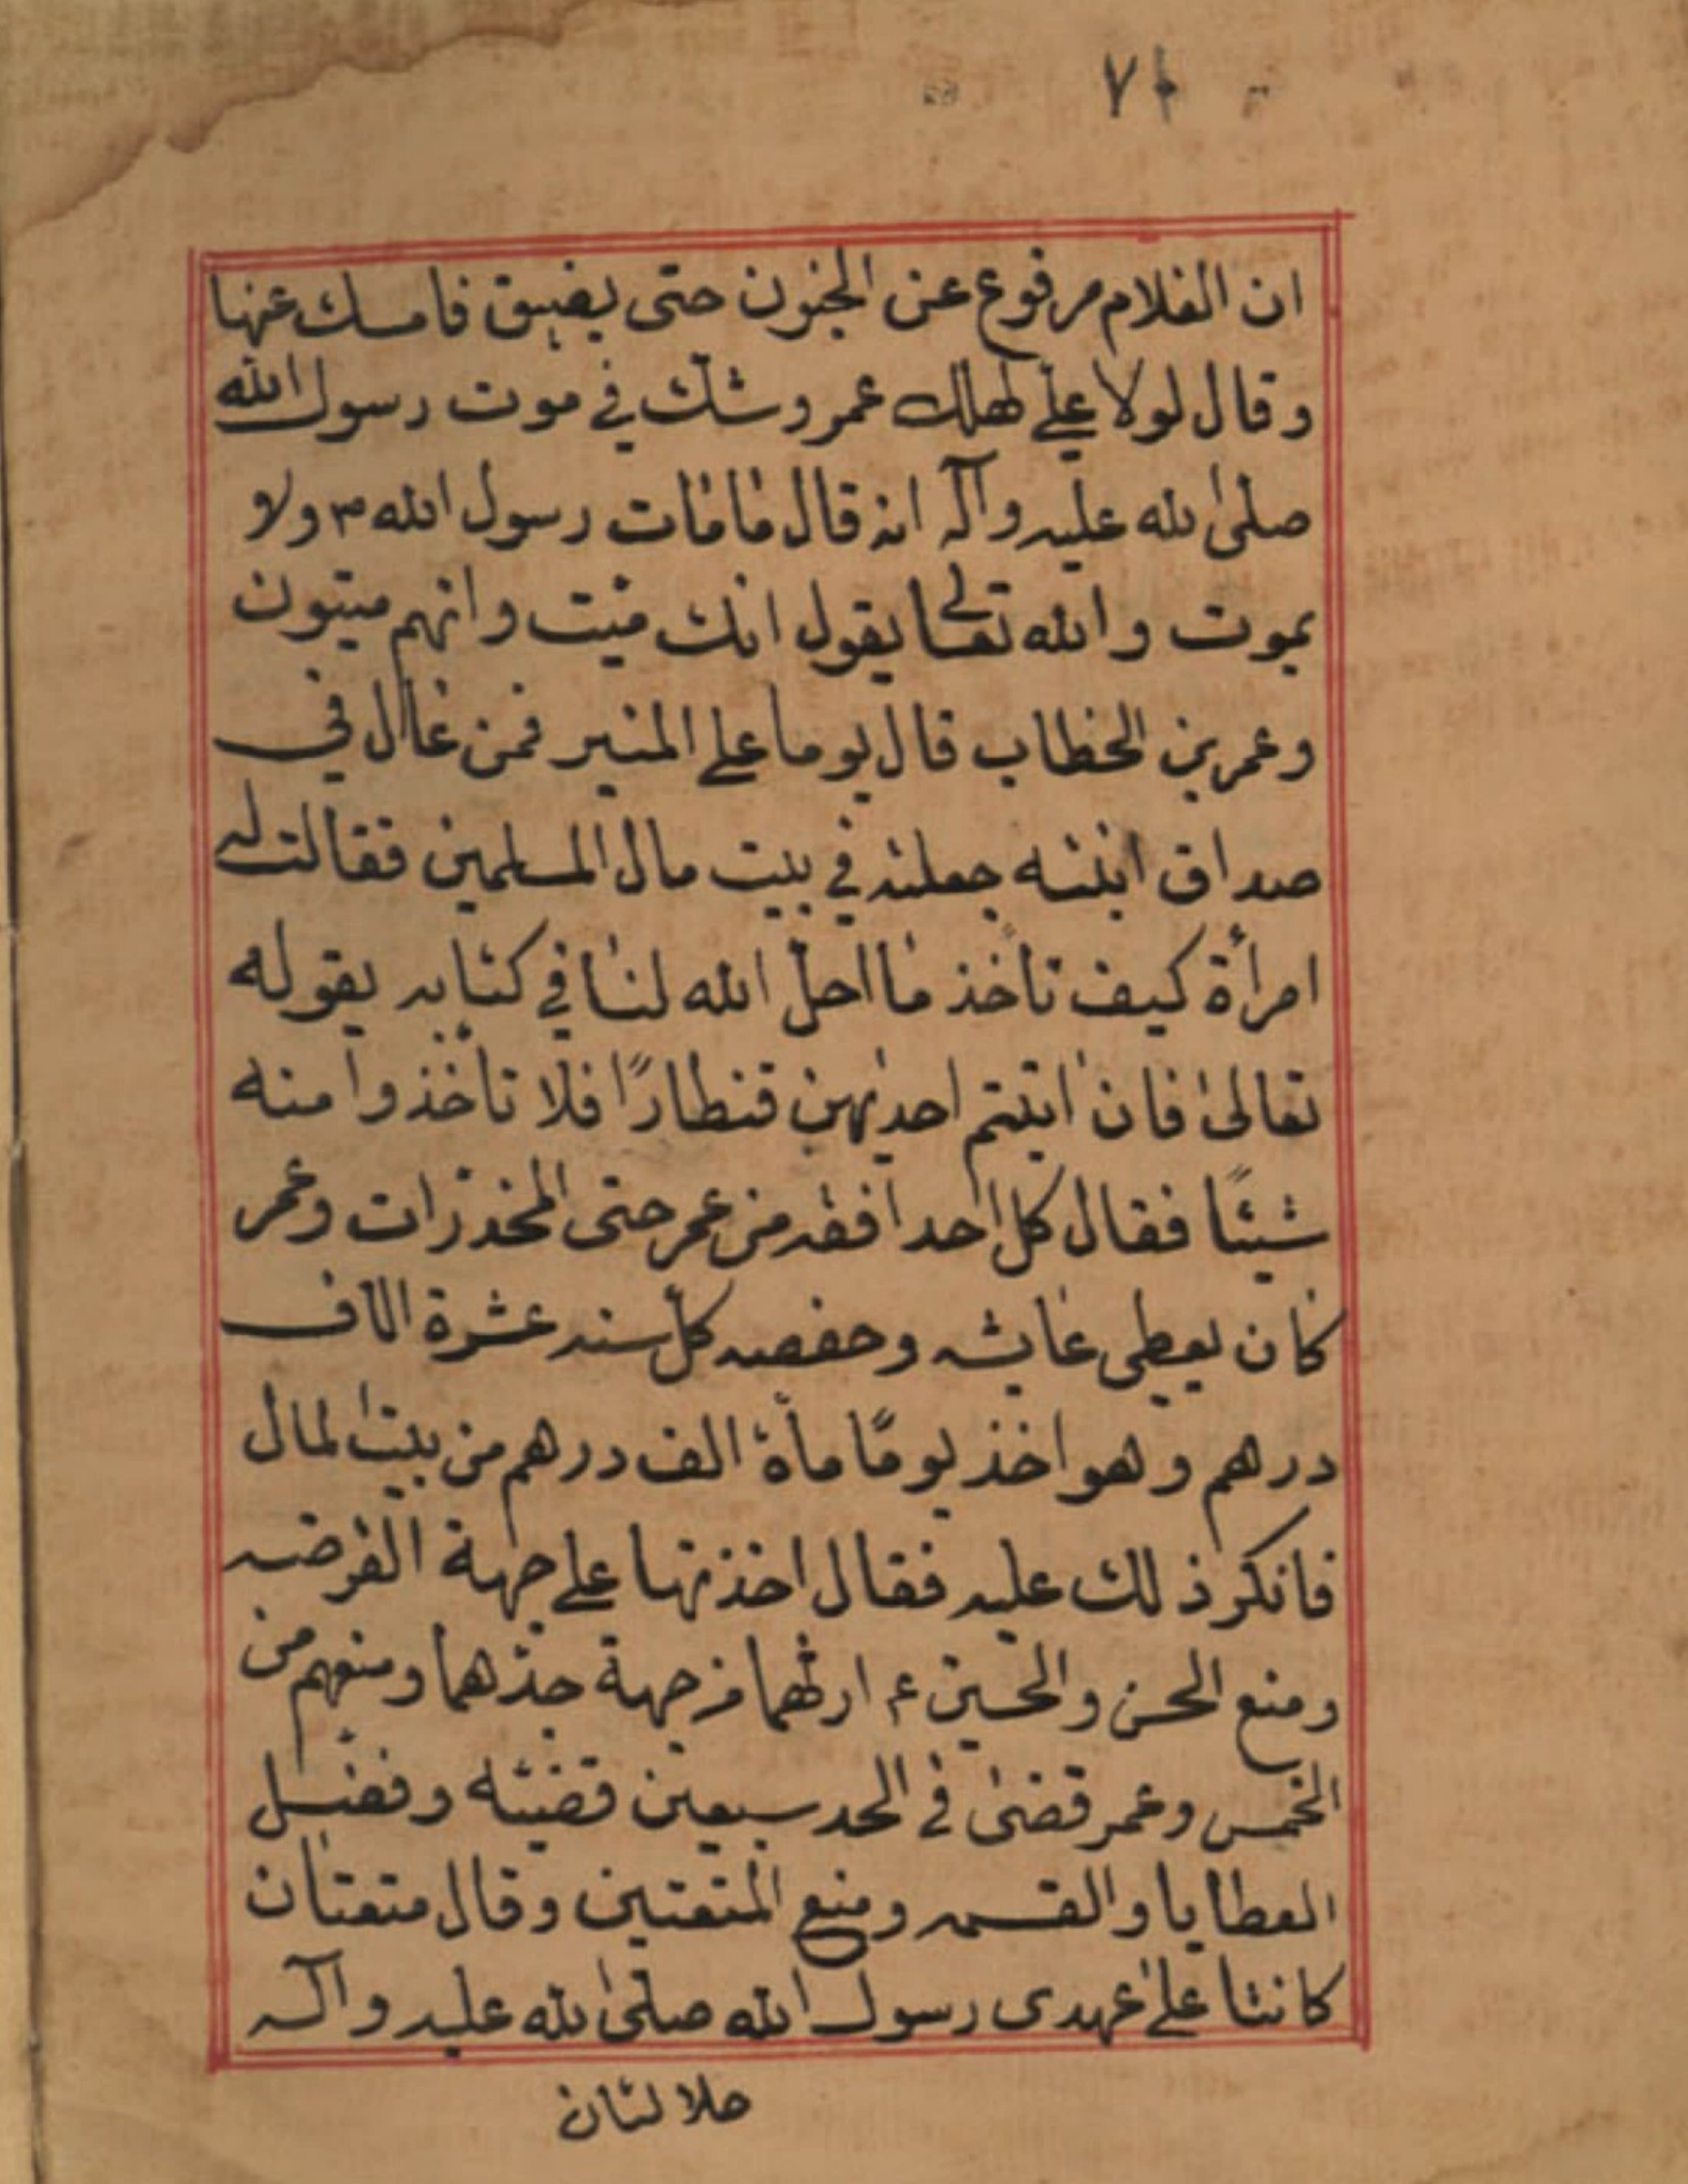 ان الغلام مرفوع عن المجنون حتى يفيق فامسك عنها
وقال لولا علي لهلك عمر وشك في موت رسول الله
صلى الله عليه وآله انه قال مامات رسول الله ص ولا
يموت والله تعالى يقول انك ميت وانهم ميتون
وعمر بن الخطاب قال يوما على المنبر فمن غال في
صداق ابنته جعلته في بيت مال المسلمين فقالت له
امرأة كيف تأخذ ما احل الله لنا في كتابه بقوله
تعالى فان اتيتم احديهن قنطارًا فلا تأخذوا منه
شيئًا فقال كل احد افقه من عمر حتى المخدرات وعمر
كان يعطي عايشه وحفصه كل سنه عشرة الاف
درهم وهو اخذ يومًا مأة الف درهم من بيت المال
فانكر ذلك عليه فقال اخذتها على جهة القرضه
ومنع الحسن والحسين ع ارثهما من جهة جدهما ومنعهم من
الخمس وعمر قضى في الحد سبعين قضيته وفضل
العطايا والقسمه ومنع المتعتين وقال متعتان
كانتا على عهدى رسول الله صلى الله عليه وآله
حلالتان